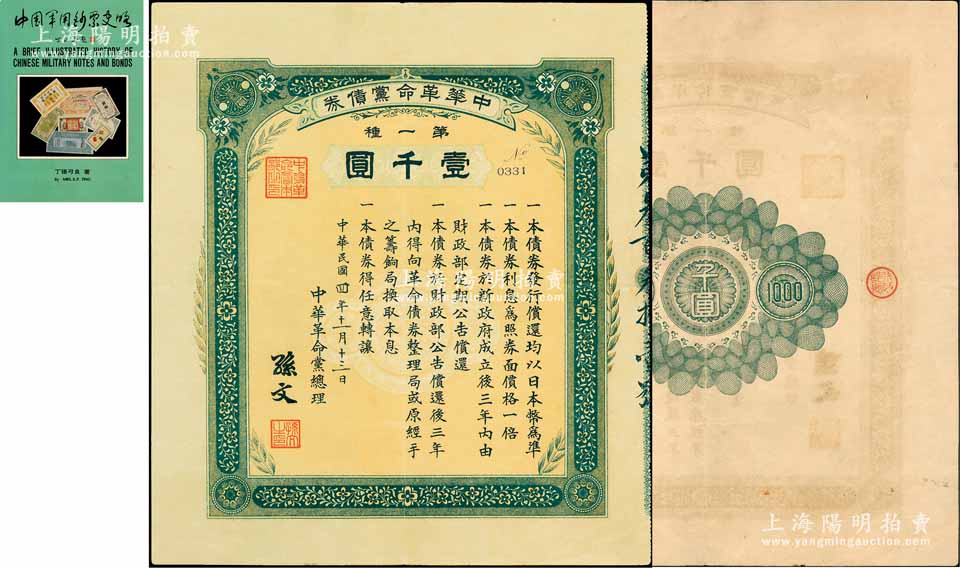 中國軍用鈔票史略
A BRIEF ILLUSTRATED HISTORY OF
CHINESE MILITARY NOTES AND BONDS
丁張弓良 著
by MRS. S.P. TING
上海陽明拍賣
www.yangmingauction.com
中華革命黨債券
第一種
壹千圓
No
0331
一本債券發行償還均以日本幣爲準
一本債券利息爲照券面價格一倍
一本債券於新政府成立後三年內由
財政部定期公告償還
一本債券於財政部公告償還後三年
內得向革命債券整理局或原經手
之籌餉局換取本息
一本債券得任意轉讓
中華民國四年十一月十三日
中華革命黨總理
孫文
上海陽明拍賣
www.yangmingauction.com
千圓
1000
上海陽明拍賣
www.yangmingauction.com